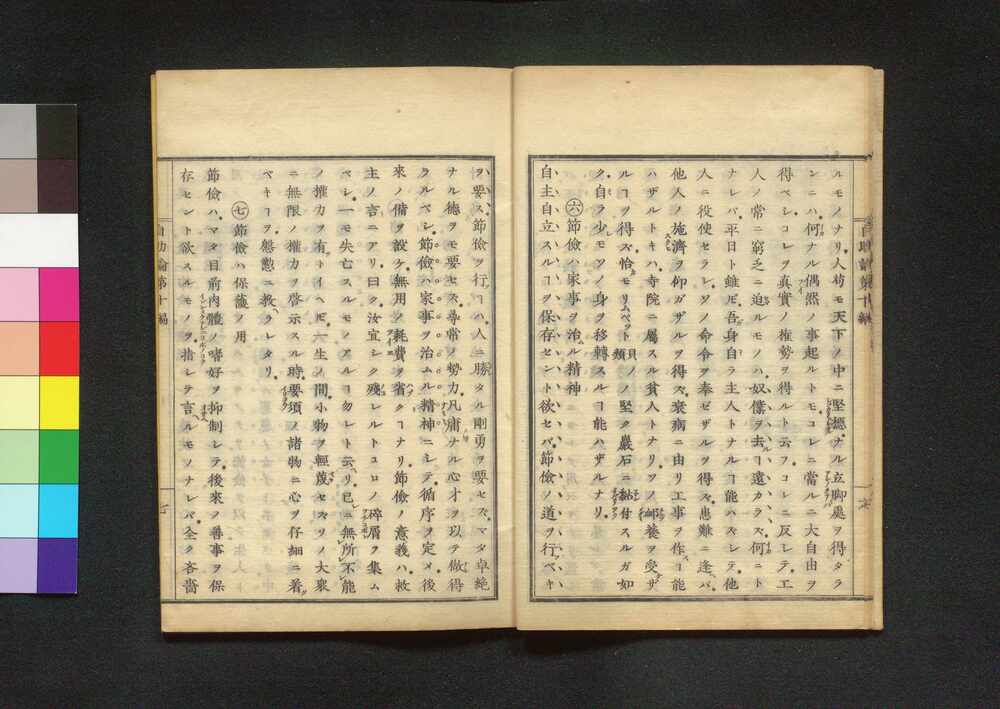 ルモノナリ人苟モ天下ノ中ニ堅穩ナル立脚處ヲ得タラ
ンニハ何ナル偶然ノ事起ルトモコレニ當ルニ大自由ヲ
得ベシコレヲ真實ノ權勢ヲ得ルト云フコレニ反シテ工
人ノ常ニ窮乏ニ迫ルモノハ奴僕ヲ去ルヿ遠カラズ何ニト
ナレバ平日ト雖𪜈吾身自ラ主人トナルヿ能ハズシテ他
人ニ役使セラレソノ命令ヲ奉ゼザルヲ得ズ患難ニ逢バ
他人ノ施濟ヲ仰ガザルヲ得ズ衰病ニ由リ工事ヲ作ス能
ハザルトキハ寺院ニ屬スル貧人トナリソノ邺養ヲ受ザ
ルヿヲ得ズ恰モリムペット貝ノ類ノ堅ク巖石ニ黏付スルガ如
ク自ラ少モソノ身ヲ移轉スルヿ能ハザルナリ
自主自立スルヿヲ保存セント欲セバ節儉ノ道ヲ行ベキ
㊅節儉ハ家事ヲ治ムル精神
ヲ要ス節儉ヲ行フヿハ人ニ勝タル剛勇ヲ要セズマタ卓絶
ナル德ヲモ要セズ尋常ノ勢力凡庸ナル心才ヲ以テ做得
ラルベシ節儉ハ家事ヲ治ムル精神ニシテ循序ヲ定メ後
來ノ備ヲ設ケ無用ノ耗費ヲ省クヿナリ節儉ノ意義ハ救
主ノ言ニアリ曰ク汝宜シク殘レルトコロノ碎屑ヲ集ム
ベシ一モ失亡スルモノアルヿ勿レト云リ已ニ無所不能
ノ權力ヲ有トイヘ𪜈一生ノ間小物ヲ輕蔑セズソノ大衆
ニ無限ノ權力ヲ啓示スル時要須ノ諸物ニ心ヲ仔細ニ着
ベキヿヲ慇懃ニ教ヘラレタリ
㊆節儉ハ保護ノ用
節儉ハマタ目前肉體ノ嗜好ヲ抑制シテ後來ノ善事ヲ保
存セント欲スルモノヲ指シテ言ヘルモノナレバ全ク吝嗇
自助論第十編
七